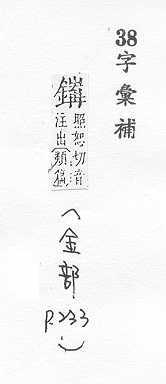 38
字彙補
照恕切音
注出（類篇）
（金部
P.233）